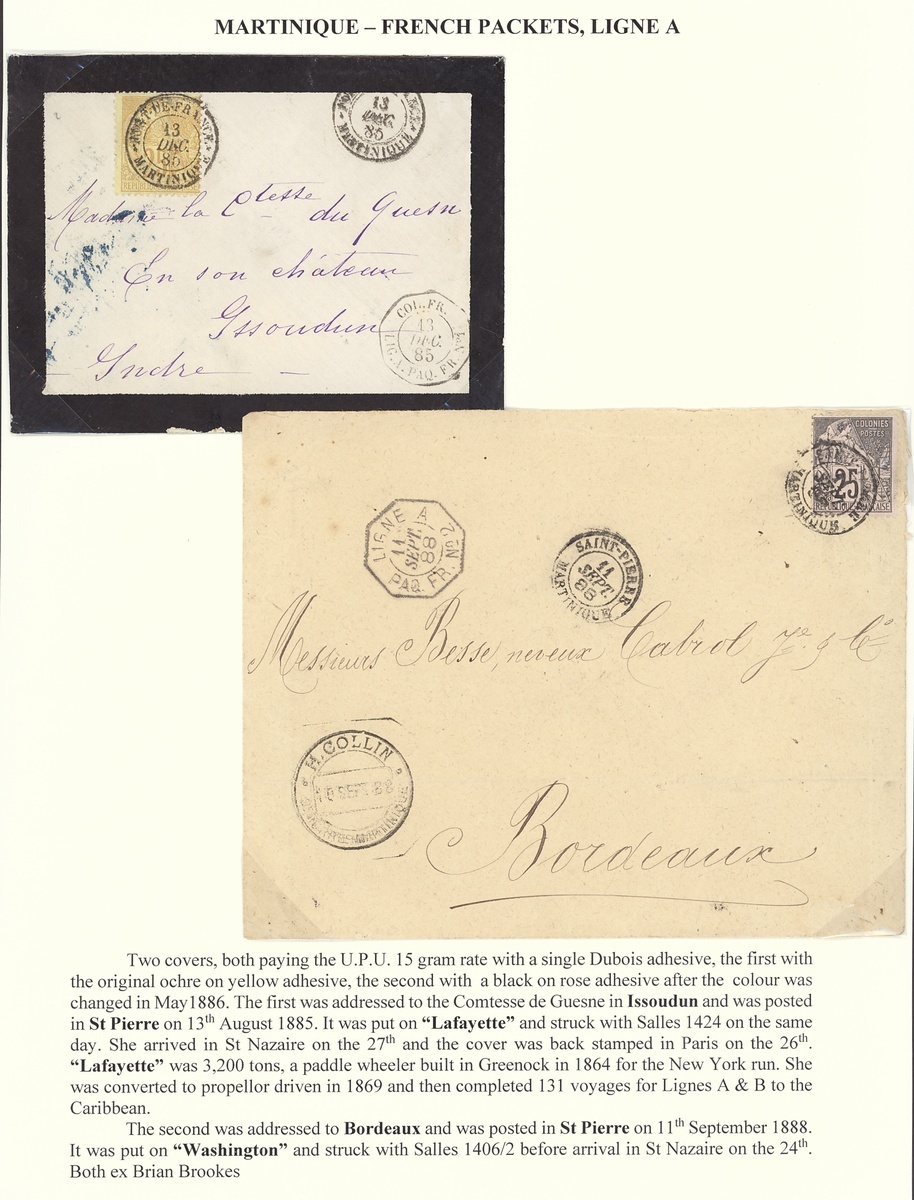 MARTINIQUE – FRENCH PACKETS, LIGNE A
FORT-DE-FRANCE
13
DEC.
85
MARTINIQUE
13
DEC.
85
MARTINIQUE
Madame la Ctesse du Quesn
En son château
Issoudun
Indre
COL. FR.
13
DEC.
85
LIG. A. PAQ. FR. No4
COLONIES
POSTES
25
REPUBLIQUE FRANÇAISE
MARTINIQUE
LIGNE A
11
SEPT
88
PAQ. FR. No 2
SAINT-PIERRE
11
SEPT.
88
MARTINIQUE
Messieurs Besse, neveux Cabrol Jne & Cie
H. COLLIN
10 SEPT 88
MARTINIQUE
Bordeaux
Two covers, both paying the U.P.U. 15 gram rate with a single Dubois adhesive, the first with
the original ochre on yellow adhesive, the second with a black on rose adhesive after the colour was
changed in May1886. The first was addressed to the Comtesse de Guesne in Issoudun and was posted
in St Pierre on 13th August 1885. It was put on “Lafayette” and struck with Salles 1424 on the same
day. She arrived in St Nazaire on the 27th and the cover was back stamped in Paris on the 26th.
“Lafayette” was 3,200 tons, a paddle wheeler built in Greenock in 1864 for the New York run. She
was converted to propellor driven in 1869 and then completed 131 voyages for Lignes A & B to the
Caribbean.
The second was addressed to Bordeaux and was posted in St Pierre on 11th September 1888.
It was put on “Washington” and struck with Salles 1406/2 before arrival in St Nazaire on the 24th.
Both ex Brian Brookes